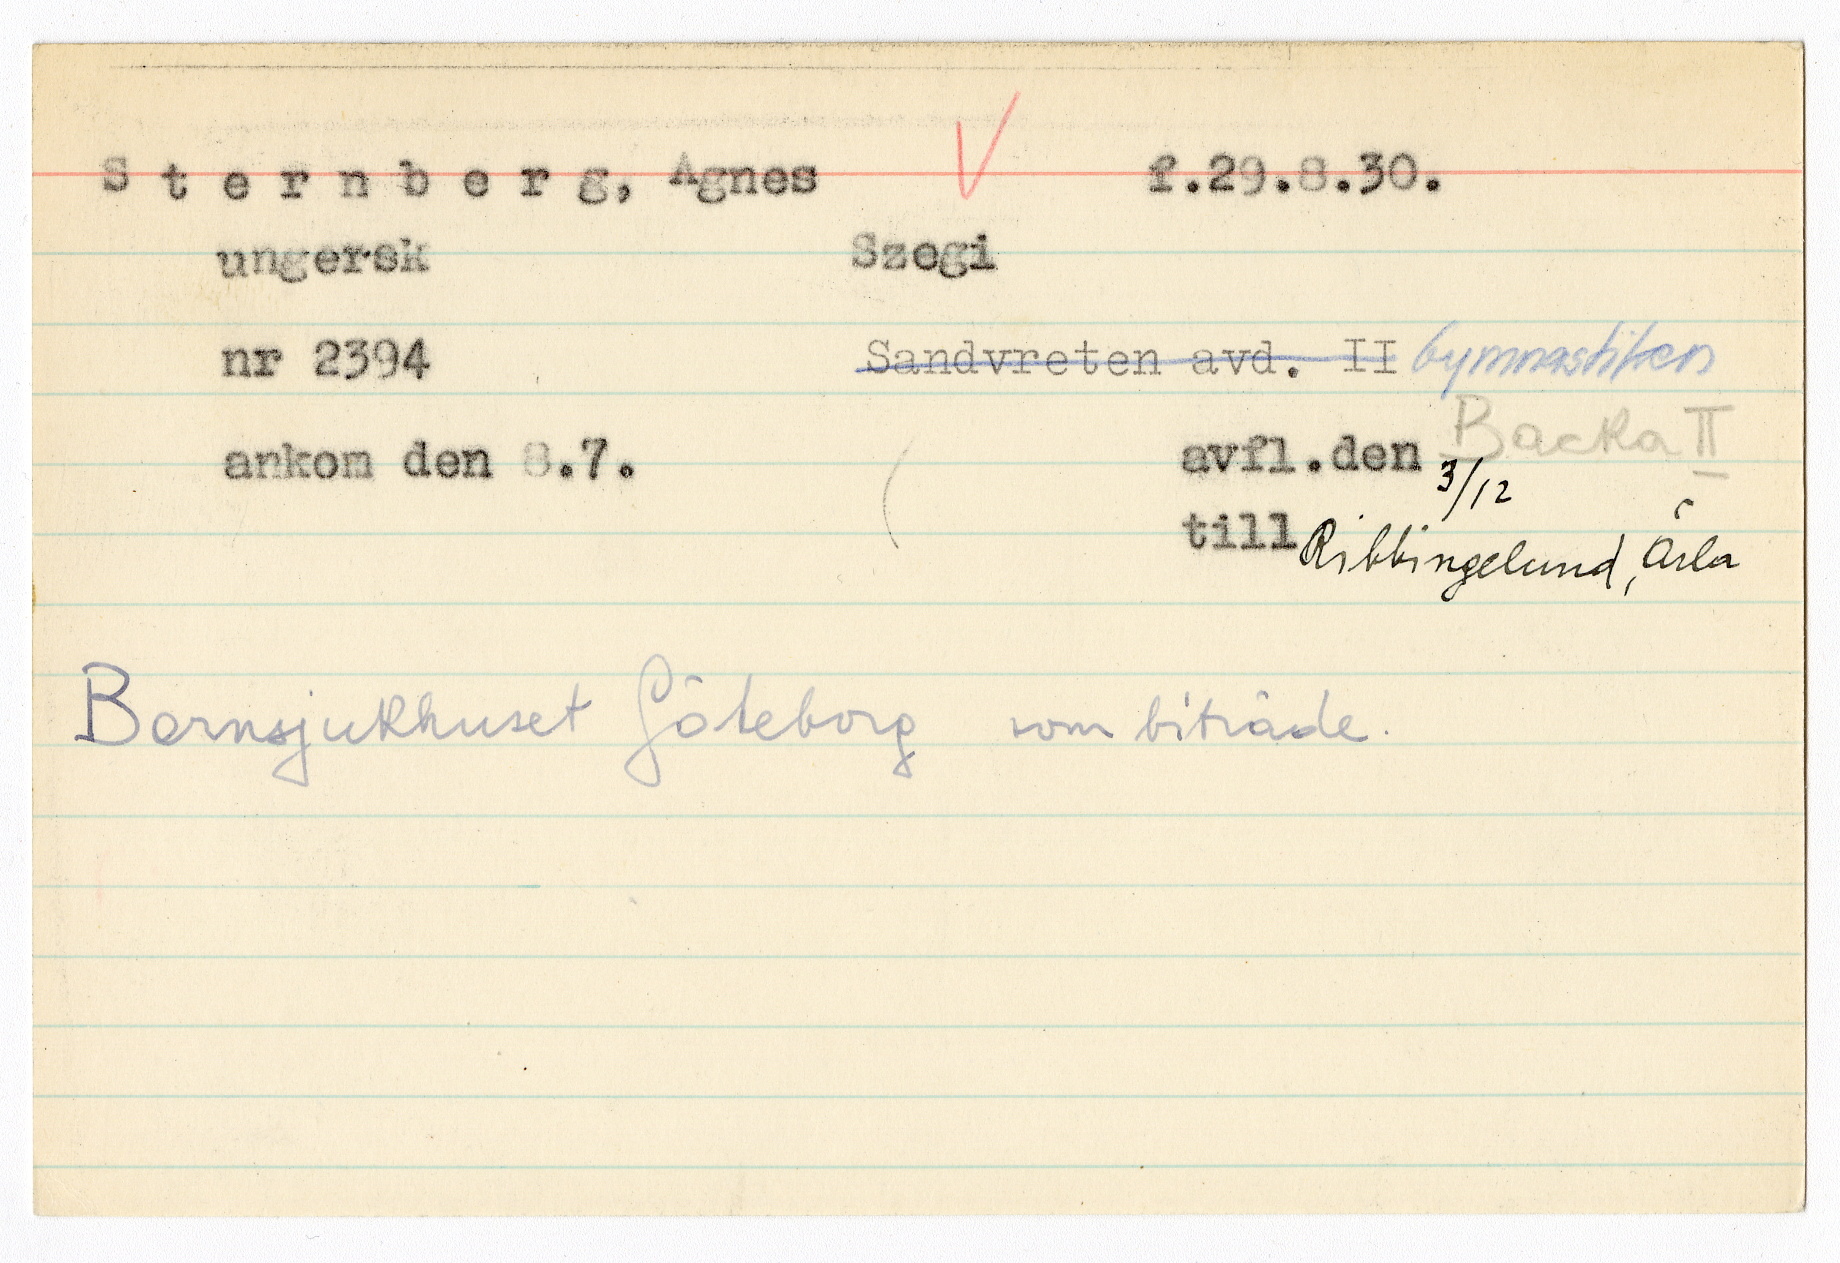 Sternberg, Agnes f.29.8.30.
ungersk Szegi
nr 2394 Sandvreten avd. II Gymnastiken
Backa II
ankom den 8.7. avfl.den 3/12
till Ribbingelund, Ärla
Barnsjukhuset Göteborg som biträde.